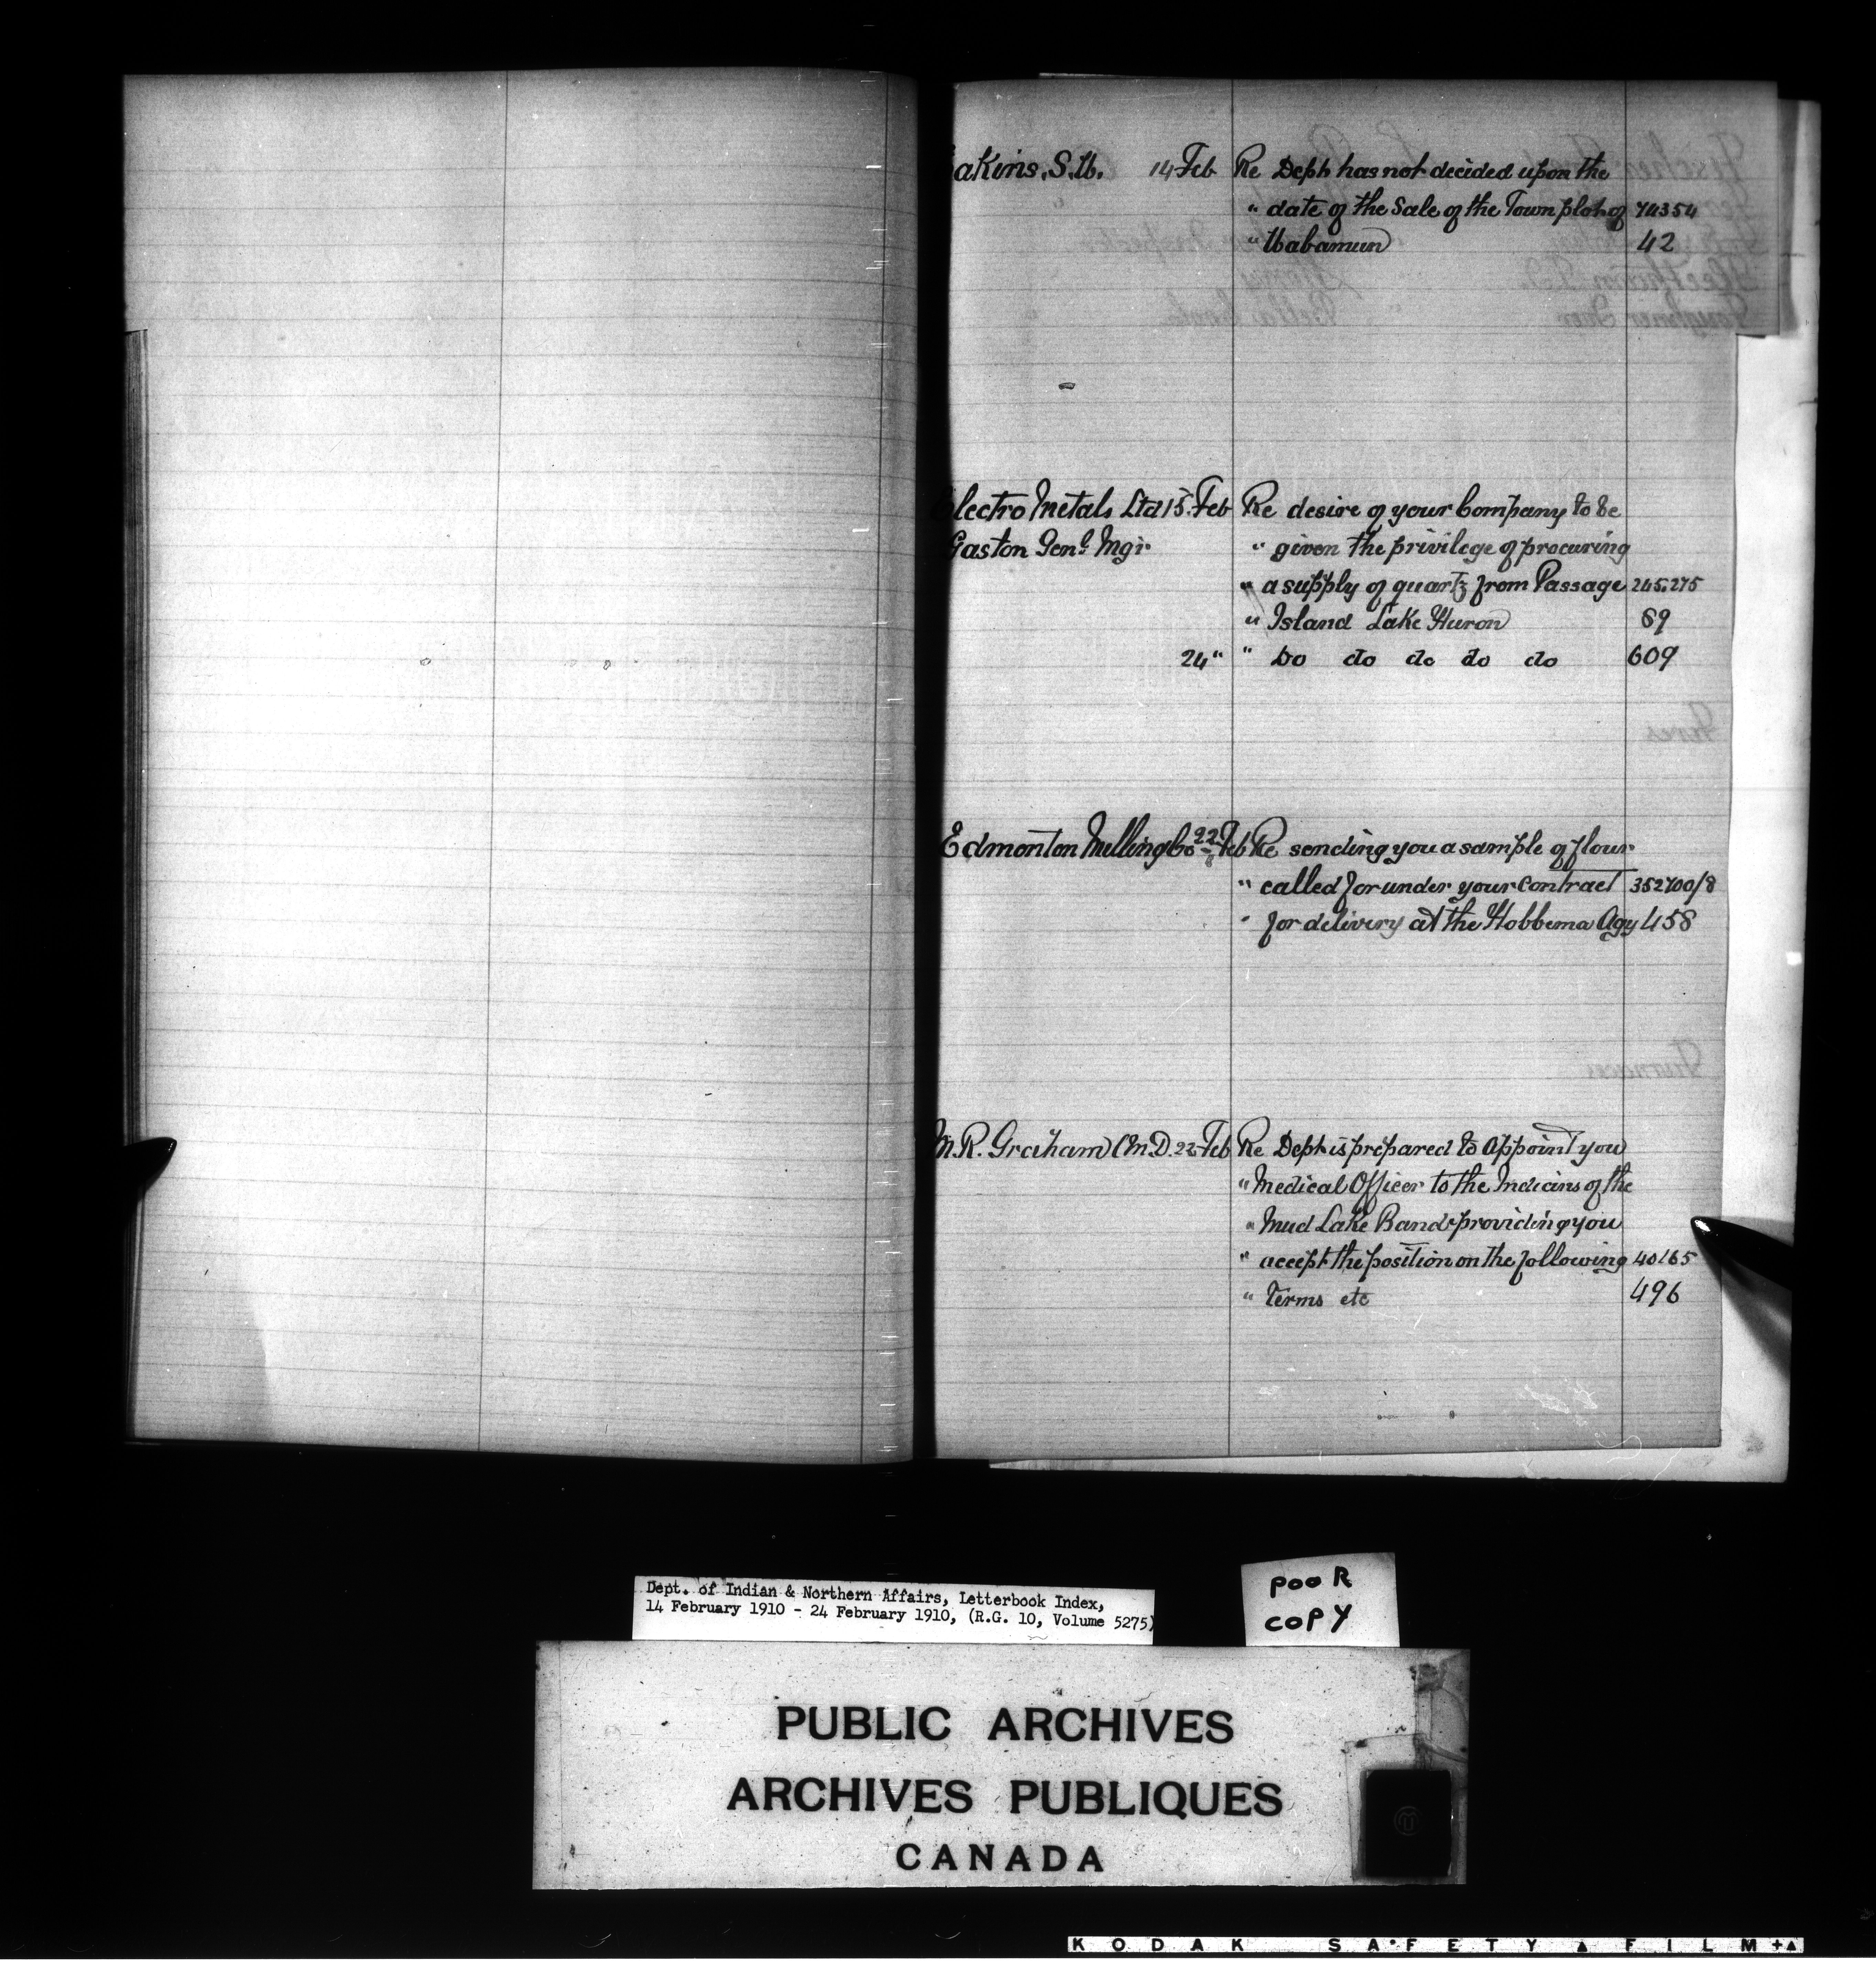 akins, S.W. 14 Feb Re Dept has not decided upon the
" date of the Sale of the Town plot of 74354
" Wabamun 42
Electro Metals Ltd 15 Feb Re desire of your Company to be
Gaston Genl Mgr " given the privilege of procuring
" a supply of quartz from Passage 245.275
" Island Lake Huron 89
24 " " Do do do do do 609
Edmonton Milling Co 22 Feb Re sending you a sample of flour
" called for under your Contract 352700/8
" for delivery at the Hobbema Agy 458
M.R. Graham (M.D. 22 Feb Re Dept is prepared to Appoint you
" Medical Officer to the Indians of the
" Mud Lake Band providing you
" accept the position on the following 40165
" Terms etc 496
Dept. of Indian & Northern Affairs, Letterbook Index,
14 February 1910 - 24 February 1910, (R.G. 10, Volume 5275)
POOR
COPY
PUBLIC ARCHIVES
ARCHIVES PUBLIQUES
CANADA
KODAK SAFETY FILM